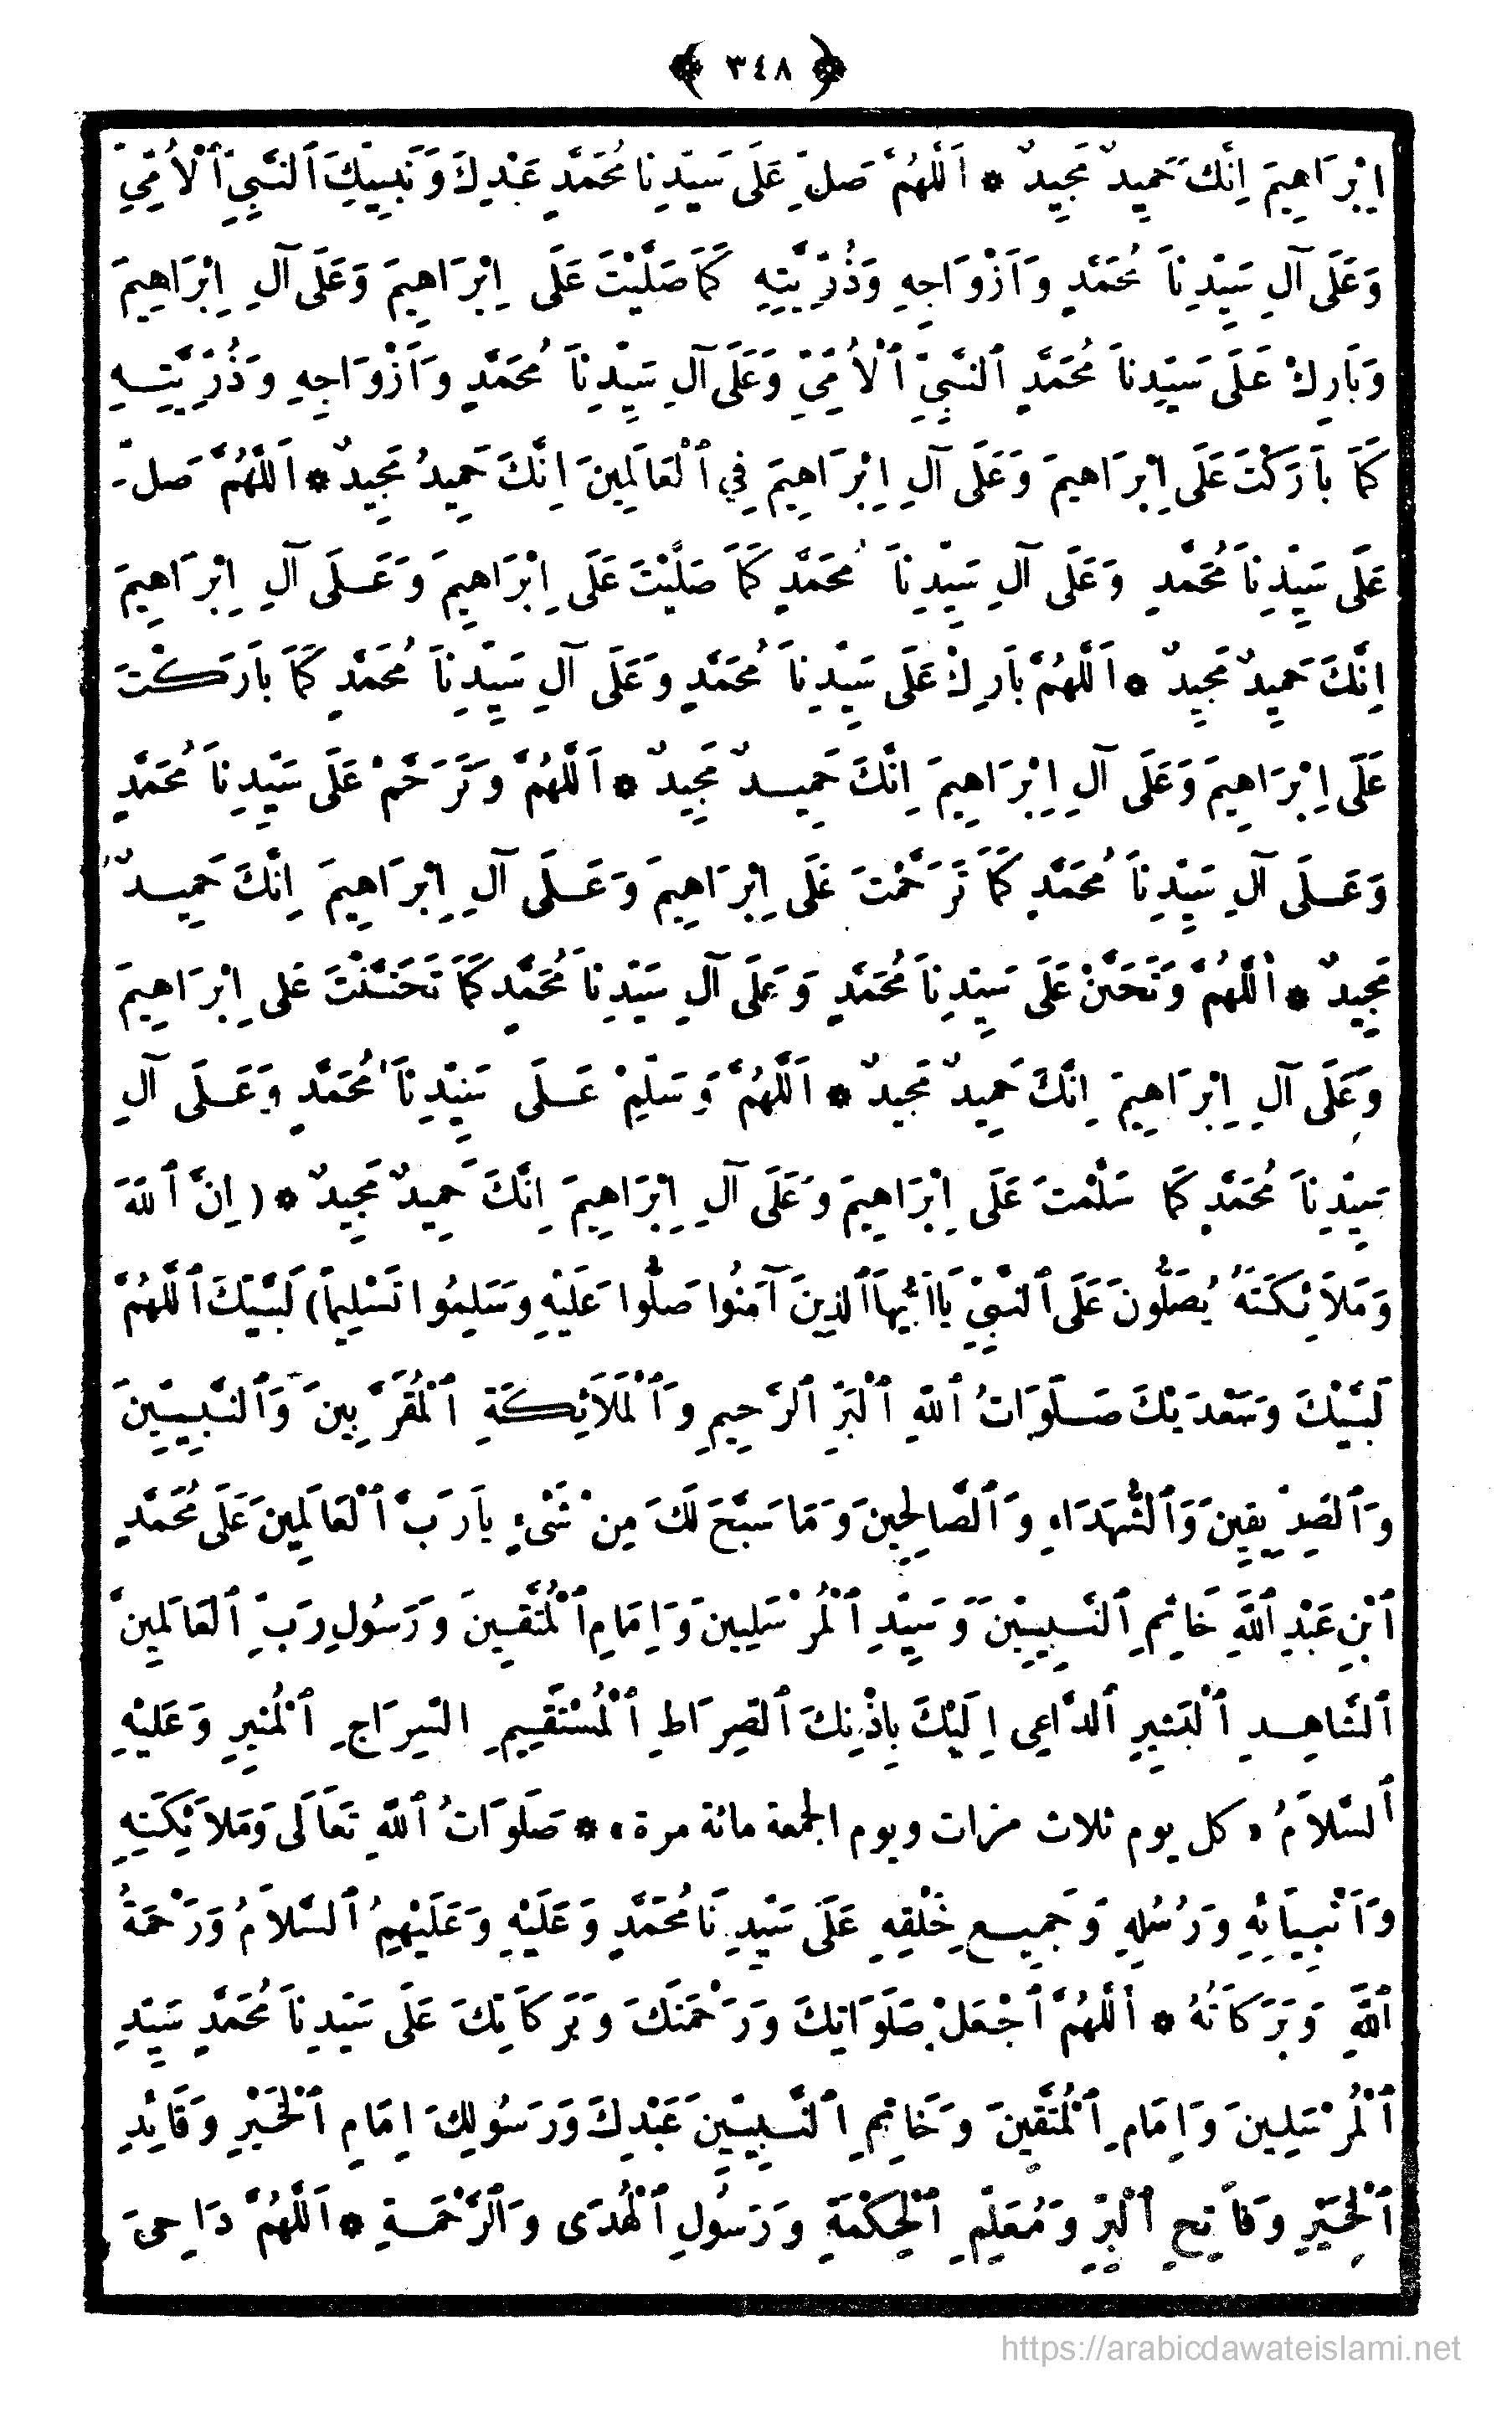 ﴿ ٣٤٨ ﴾
اِبْرَاهِيمَ اِنَّكَ حَمِيدٌ مَجِيدٌ * اَللّٰهُمَّ صَلِّ عَلَى سَيِّدِنَا مُحَمَّدٍ عَبْدِكَ وَنَبِيِّكَ ٱلنَّبِيِّ ٱلْأُمِّيِّ
وَعَلَى آلِ سَيِّدِنَا مُحَمَّدٍ وَاَزْوَاجِهِ وَذُرِّيَّتِهِ كَمَا صَلَّيْتَ عَلَى اِبْرَاهِيمَ وَعَلَى آلِ اِبْرَاهِيمَ
وَبَارِكْ عَلَى سَيِّدِنَا مُحَمَّدٍ ٱلنَّبِيِّ ٱلْأُمِّيِّ وَعَلَى آلِ سَيِّدِنَا مُحَمَّدٍ وَاَزْوَاجِهِ وَذُرِّيَّتِهِ
كَمَا بَارَكْتَ عَلَى اِبْرَاهِيمَ وَعَلَى آلِ اِبْرَاهِيمَ فِي ٱلْعَالَمِينَ اِنَّكَ حَمِيدٌ مَجِيدٌ * اَللّٰهُمَّ صَلِّ
عَلَى سَيِّدِنَا مُحَمَّدٍ وَعَلَى آلِ سَيِّدِنَا مُحَمَّدٍ كَمَا صَلَّيْتَ عَلَى اِبْرَاهِيمَ وَعَلَى آلِ اِبْرَاهِيمَ
اِنَّكَ حَمِيدٌ مَجِيدٌ * اَللّٰهُمَّ بَارِكْ عَلَى سَيِّدِنَا مُحَمَّدٍ وَعَلَى آلِ سَيِّدِنَا مُحَمَّدٍ كَمَا بَارَكْتَ
عَلَى اِبْرَاهِيمَ وَعَلَى آلِ اِبْرَاهِيمَ اِنَّكَ حَمِيدٌ مَجِيدٌ * اَللّٰهُمَّ وَتَرَحَّمْ عَلَى سَيِّدِنَا مُحَمَّدٍ
وَعَلَى آلِ سَيِّدِنَا مُحَمَّدٍ كَمَا تَرَحَّمْتَ عَلَى اِبْرَاهِيمَ وَعَلَى آلِ اِبْرَاهِيمَ اِنَّكَ حَمِيدٌ
مَجِيدٌ * اَللّٰهُمَّ وَتَحَنَّنْ عَلَى سَيِّدِنَا مُحَمَّدٍ وَعَلَى آلِ سَيِّدِنَا مُحَمَّدٍ كَمَا تَحَنَّنْتَ عَلَى اِبْرَاهِيمَ
وَعَلَى آلِ اِبْرَاهِيمَ اِنَّكَ حَمِيدٌ مَجِيدٌ * اَللّٰهُمَّ وَسَلِّمْ عَلَى سَيِّدِنَا مُحَمَّدٍ وَعَلَى آلِ
سَيِّدِنَا مُحَمَّدٍ كَمَا سَلَّمْتَ عَلَى اِبْرَاهِيمَ وَعَلَى آلِ اِبْرَاهِيمَ اِنَّكَ حَمِيدٌ مَجِيدٌ * ( اِنَّ ٱللهَ
وَمَلَائِكَتَهُ يُصَلُّونَ عَلَى ٱلنَّبِيِّ يَا اَيُّهَا ٱلَّذِينَ آمَنُوا صَلُّوا عَلَيْهِ وَسَلِّمُوا تَسْلِيمًا ) لَبَّيْكَ ٱللّٰهُمَّ
لَبَّيْكَ وَسَعْدَيْكَ صَلَوَاتُ ٱللهِ ٱلْبَرِّ ٱلرَّحِيمِ وَٱلْمَلَائِكَةِ ٱلْمُقَرَّبِينَ وَٱلنَّبِيِّينَ
وَٱلصِّدِّيقِينَ وَٱلشُّهَدَاءِ وَٱلصَّالِحِينَ وَمَا سَبَّحَ لَكَ مِنْ شَىْءٍ يَا رَبَّ ٱلْعَالَمِينَ عَلَى مُحَمَّدٍ
ٱبْنِ عَبْدِ ٱللهِ خَاتِمِ ٱلنَّبِيِّينَ وَسَيِّدِ ٱلْمُرْسَلِينَ وَاِمَامِ ٱلْمُتَّقِينَ وَرَسُولِ رَبِّ ٱلْعَالَمِينَ
ٱلشَّاهِدِ ٱلْبَشِيرِ ٱلدَّاعِى اِلَيْكَ بِاِذْنِكَ ٱلصِّرَاطِ ٱلْمُسْتَقِيمِ السِّرَاجِ ٱلْمُنِيرِ وَعَلَيْهِ
ٱلسَّلَامُ « كل يوم ثلاث مرات ويوم الجمعة مائة مرة » * صَلَوَاتُ ٱللهِ تَعَالَى وَمَلَائِكَتِهِ
وَاَنْبِيَائِهِ وَرُسُلِهِ وَجَمِيعِ خَلْقِهِ عَلَى سَيِّدِنَا مُحَمَّدٍ وَعَلَيْهِ وَعَلَيْهِمُ ٱلسَّلَامُ وَرَحْمَةُ
ٱللهِ وَبَرَكَاتُهُ * اَللّٰهُمَّ ٱجْعَلْ صَلَوَاتِكَ وَرَحْمَتَكَ وَبَرَكَاتِكَ عَلَى سَيِّدِنَا مُحَمَّدٍ سَيِّدِ
ٱلْمُرْسَلِينَ وَاِمَامِ ٱلْمُتَّقِينَ وَخَاتِمِ ٱلنَّبِيِّينَ عَبْدِكَ وَرَسُولِكَ اِمَامِ ٱلْخَيْرِ وَقَائِدِ
ٱلْخَيْرِ وَفَاتِحِ ٱلْبِرِّ وَمُعَلِّمِ ٱلْحِكْمَةِ وَرَسُولِ ٱلْهُدَى وَٱلرَّحْمَةِ * اَللّٰهُمَّ دَاحِىَ
https://arabicdawateislami.net